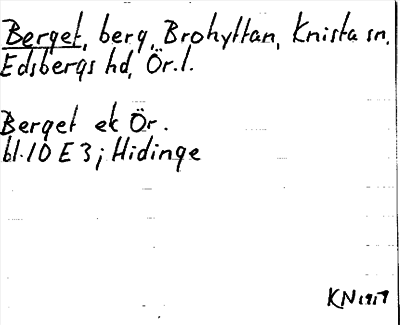 Berget, berg, Brohyttan, Knista sn,
Edsbergs hd, Ör. l.
Berget ek Ör.
bl. 10 E 3; Hidinge
KN